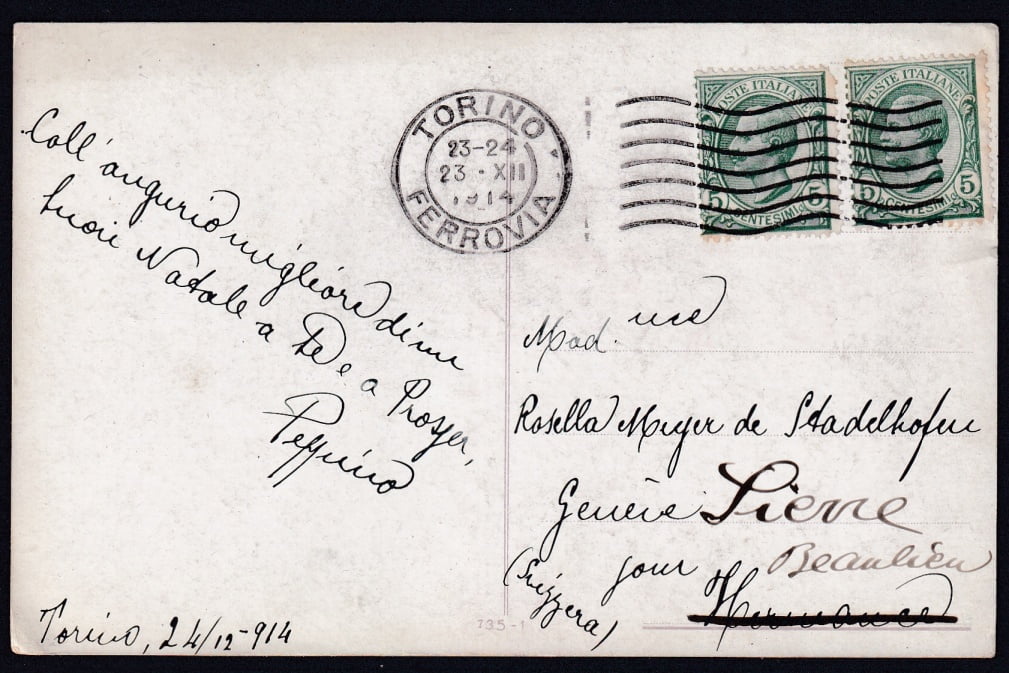 Coll'augurio migliore di un
buon Natale a Te e a Prosper,
Peppino
Torino, 24/12-914
TORINO
23-24
23·XII
1914
FERROVIA
POSTE ITALIANE
5 CENTESIMI 5
POSTE ITALIANE
5 CENTESIMI 5
Mad.me
Rosella Meyer de Stadelhofen
Genève Sierre
pour Beaulieu
(Svizzera) Hermance
735-1